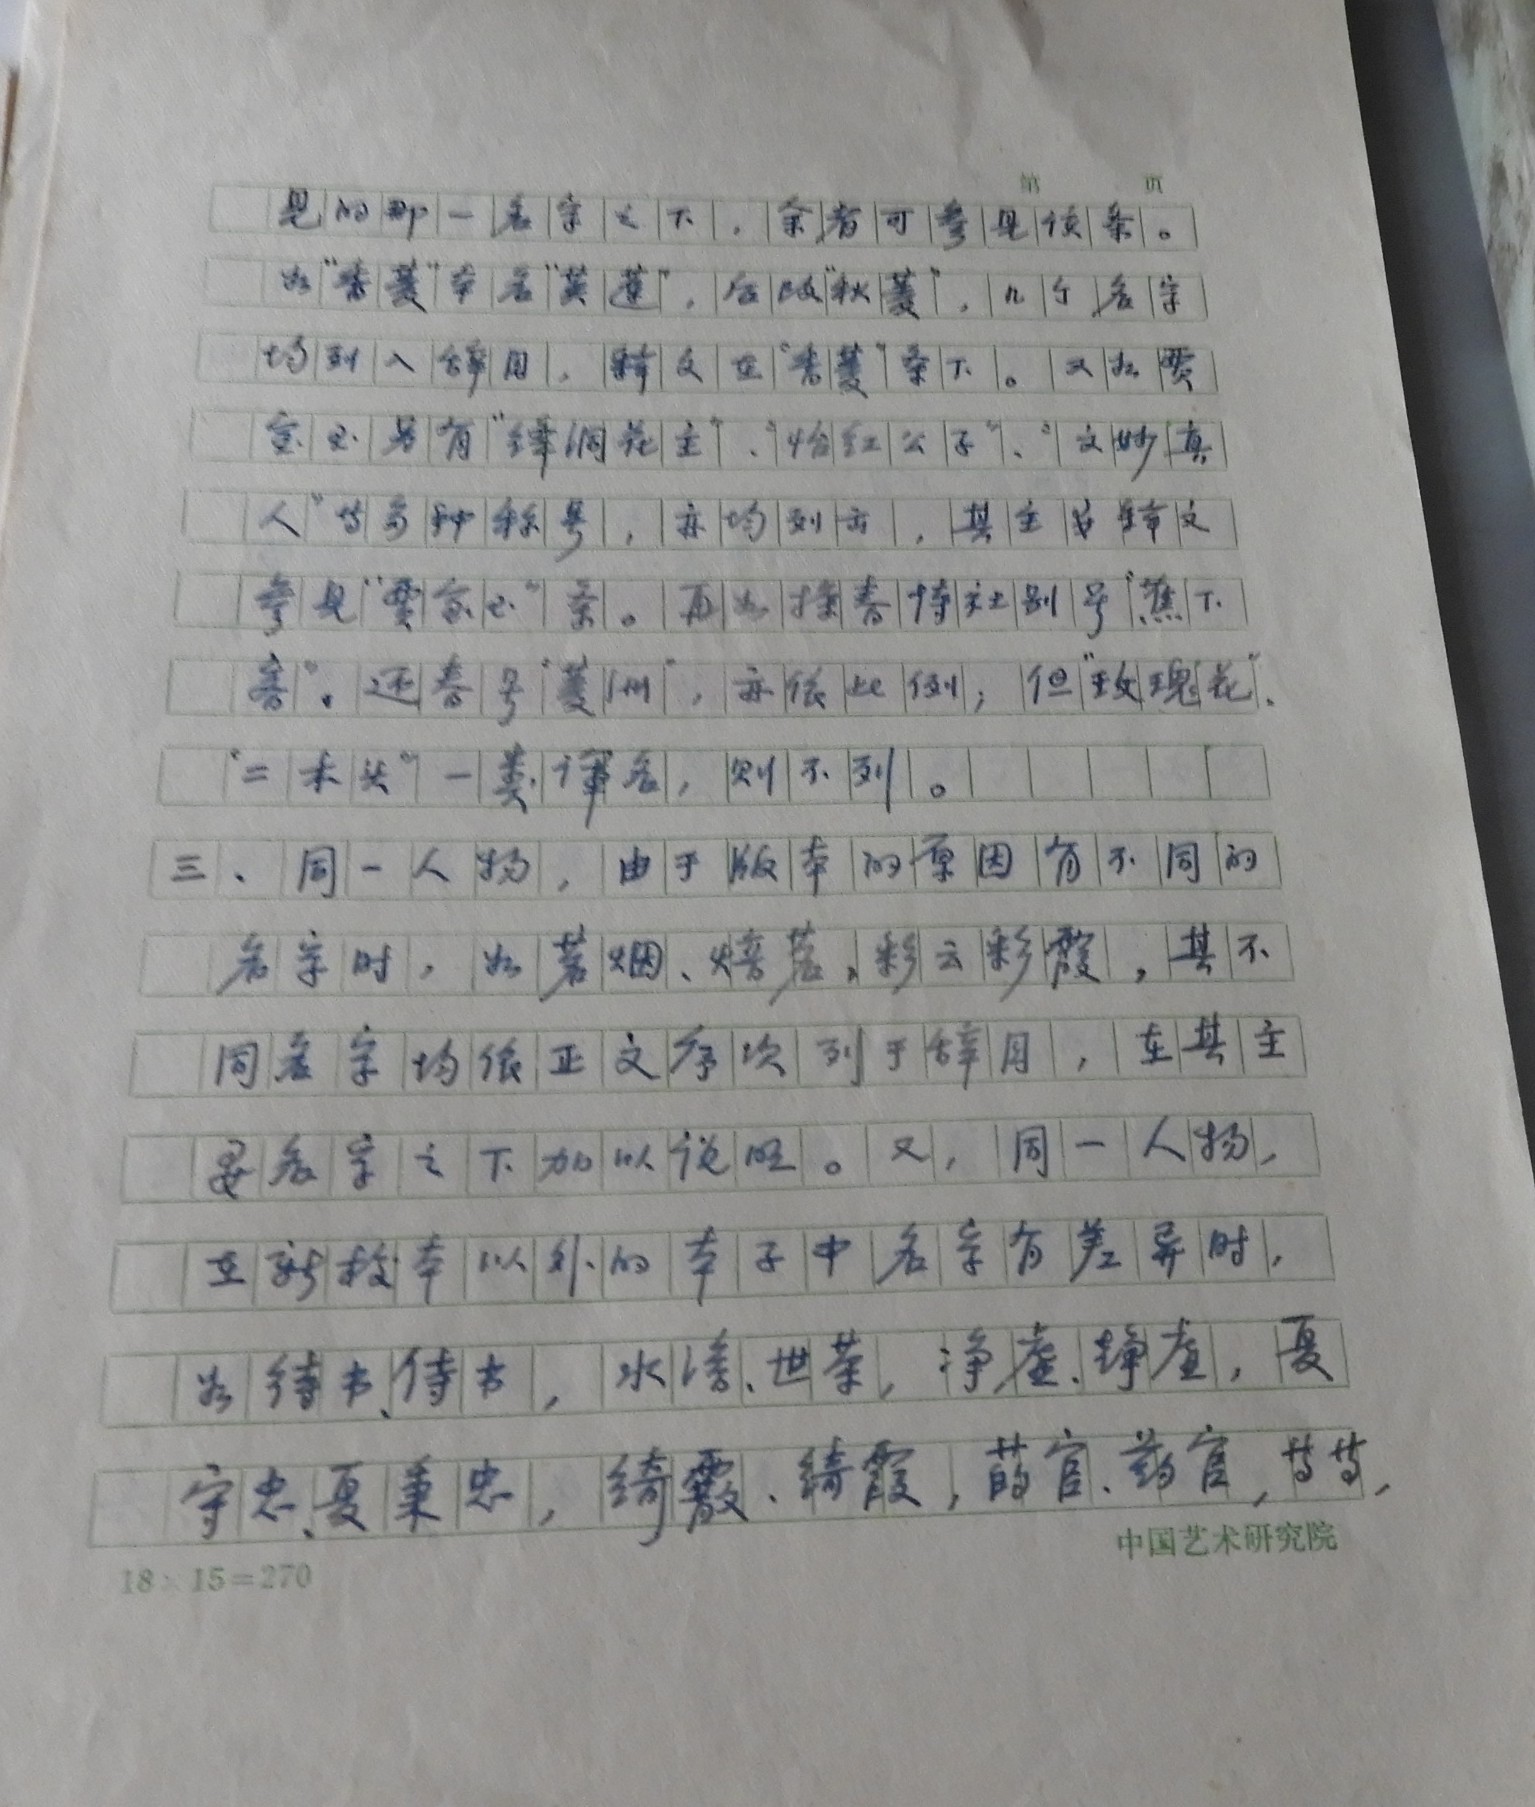 第 页
见的那一名字之下，余者可参见该条。
如“香菱”本名“英莲”，后改“秋菱”，几个名字
均列入辞目，释文在“香菱”条下。又如贾
宝玉另有“绛洞花主”、“怡红公子”、“文妙真
人”等多种称号，亦均列出，其主要释文
参见“贾宝玉”条。再如探春诗社别号“蕉下
客”，迎春号“菱洲”，亦依此例；但“玫瑰花”、
“二木头”一类诨名，则不列。
三、同一人物，由于版本的原因有不同的
名字时，如茗烟、焙茗，彩云彩霞，其不
同名字均依正文序次列于辞目，在其主
要名字之下加以说明。又，同一人物，
在新校本以外的本子中名字有差异时，
如待书、侍书，水溶、世荣，净虚、静虚，夏
守忠、夏秉忠，绮霰、绮霞，菂官、药官，等等，
18×15=270
中国艺术研究院